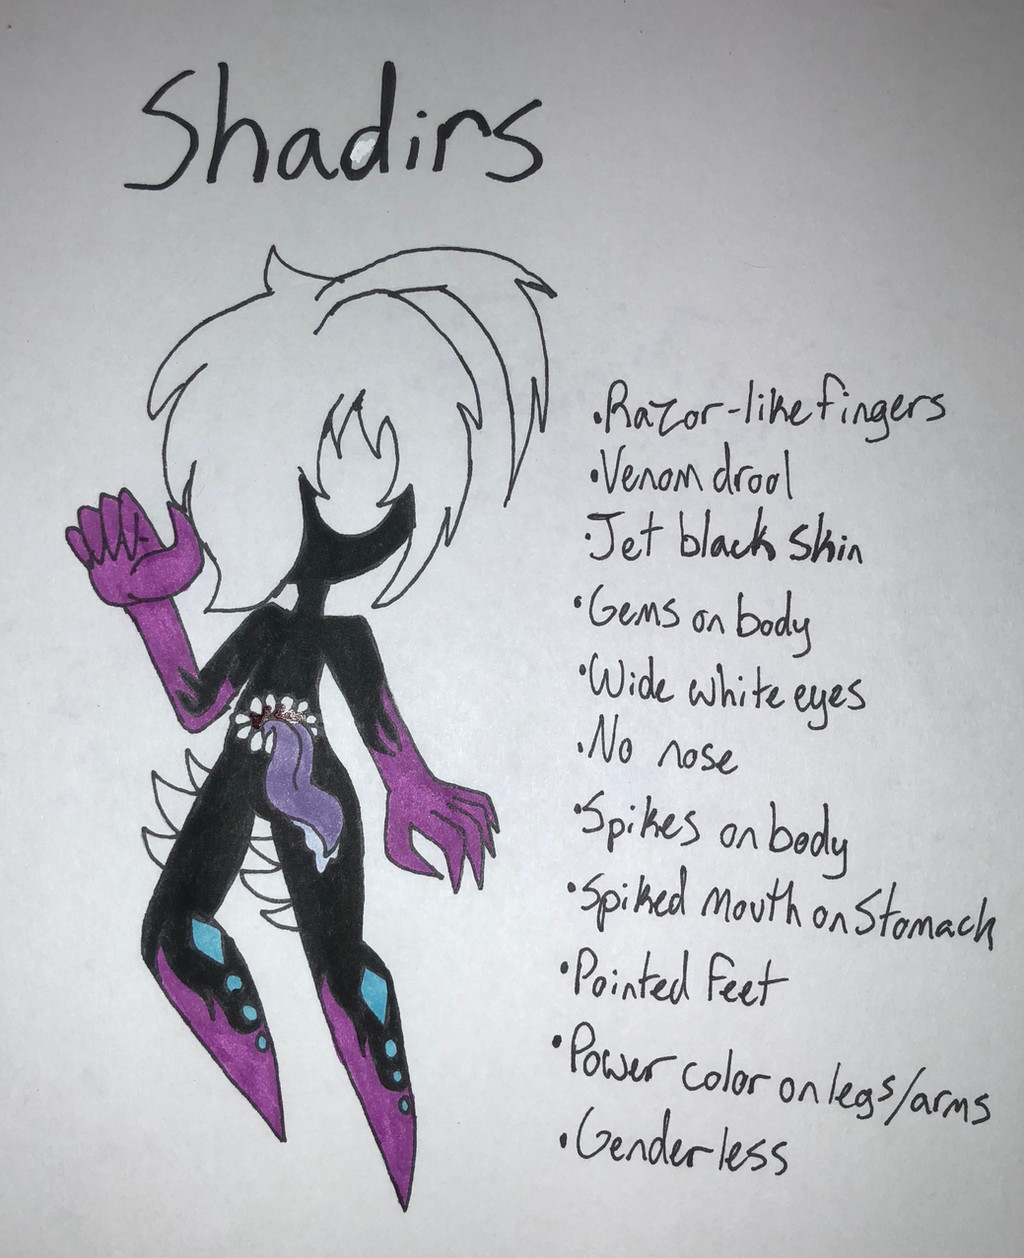 Shadirs
•Razor-like fingers
•Venom drool
•Jet black skin
•Gems on body
•Wide white eyes
•No nose
•Spikes on body
•Spiked mouth on Stomach
•Pointed feet
•Power color on legs/arms
•Genderless